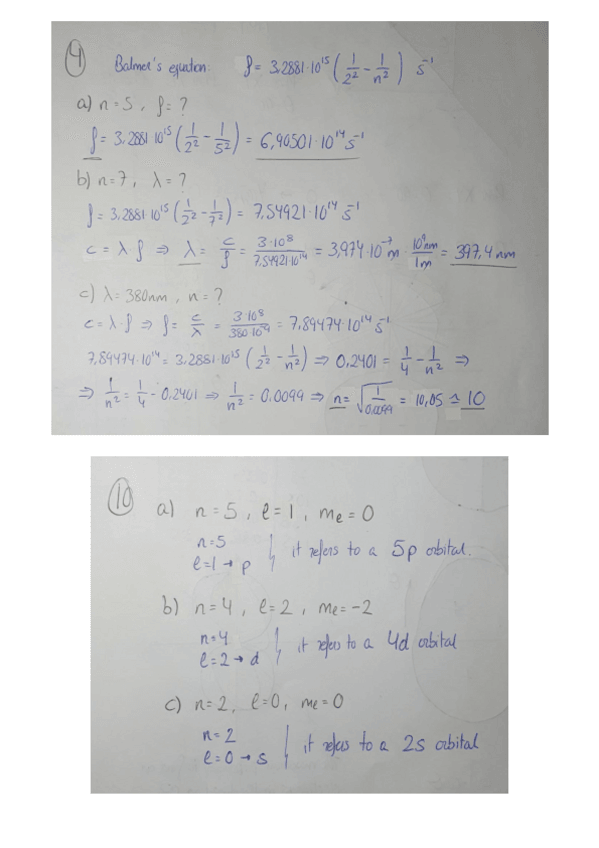 4 Balmer's equation: f = 3,2881·10^15 (1/2² - 1/n²) s⁻¹
a) n = 5, f = ?
f = 3,2881·10^15 (1/2² - 1/5²) = 6,90501·10^14 s⁻¹
b) n = 7, λ = ?
f = 3,2881·10^15 (1/2² - 1/7²) = 7,54921·10^14 s⁻¹
c = λ·f ⇒ λ = c/f = 3·10^8/7,54921·10^14 = 3,974·10⁻⁷ m · 10^9 nm/1 m = 397,4 nm
c) λ = 380 nm, n = ?
c = λ·f ⇒ f = c/λ = 3·10^8/380·10⁻⁹ = 7,89474·10^14 s⁻¹
7,89474·10^14 = 3,2881·10^15 (1/2² - 1/n²) ⇒ 0,2401 = 1/4 - 1/n² ⇒
⇒ 1/n² = 1/4 - 0,2401 ⇒ 1/n² = 0,0099 ⇒ n = √(1/0,0099) = 10,05 ≃ 10
10 a) n = 5, ℓ = 1, mℓ = 0
n = 5
ℓ = 1 → p
it refers to a 5p orbital.
b) n = 4, ℓ = 2, mℓ = -2
n = 4
ℓ = 2 → d
it refers to a 4d orbital
c) n = 2, ℓ = 0, mℓ = 0
n = 2
ℓ = 0 → s
it refers to a 2s orbital